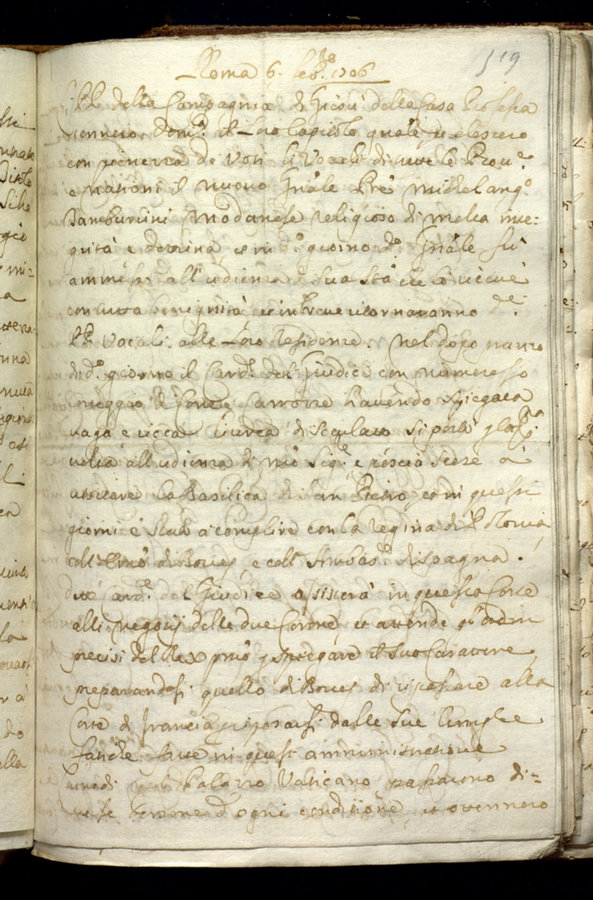 Roma 6. feb.ro 1706
319
PP. della Compagnia di Giesù della Casa Professa
tennero dom.ca il Loro Capitolo quale si elessero
con pienezza de Voti li Vocali di tutte le Prou.e
e nationi il nuovo Gn̄ale Pre Michelang.o
Tamburini Modanese religioso di molta inte-
grità e dottrina et in d.o giorno d.o Gn̄ale fù
ammesso all'udienza di Sua Stà che lo riceuè
con tutta benignità et in breue ritornaranno de.i
PP. Vocali alle Loro residenze. Nel dopo pranzo
di d.o giorno il Card.l del Giudice con numeroso
corteggio di Corte e Carrozze hauendo spiegata
vaga e ricca Liurea di si portò p la p.a
uolta all'udienza di Nrō Sig.re e poscia scese à
uisitare la Basilica di San Pietro, et in questi
giorni è stato a complire con la Regina di Polonia
coll' Emō di Boues, e coll' Ambas.re di Spagna.
d.o Card.l del Giudice assisterà in questa Corte
alli negozij delle due Corone, et attende gl'ordini
precisi del Rè p.mo p spiegare il suo Carattere
preparandosi quello di Boues di ripassare alla
Corte di Francia p riposarsi dalle sue lunghe
fatiche fatte in quest' amministratione
Palazzo Vaticano passarono di-
uerse persone d'ogni conditione, et ottennero